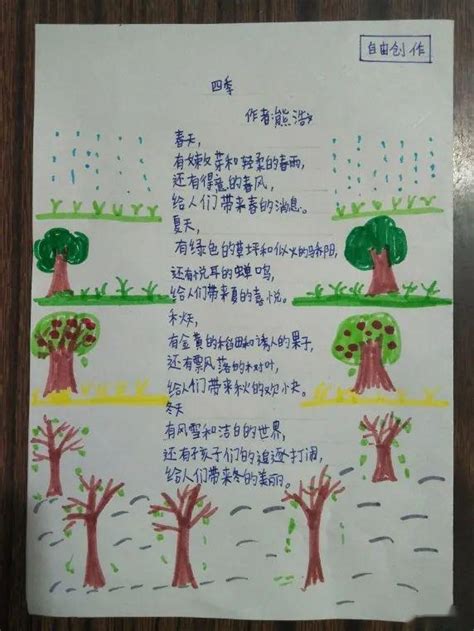 自由创作
四季
作者:熊浩
春天,
有嫩芽和轻柔的春雨,
还有得意的春风,
给人们带来春的消息。
夏天,
有绿色的草坪和似火的骄阳,
还有悦耳的蝉鸣,
给人们带来夏的喜悦。
秋天,
有金黄的稻田和诱人的果子,
还有飘风落的树叶,
给人们带来秋的欢快。
冬天
有风雪和洁白的世界,
还有孩子们的追逐打闹,
给人们带来冬的美丽。